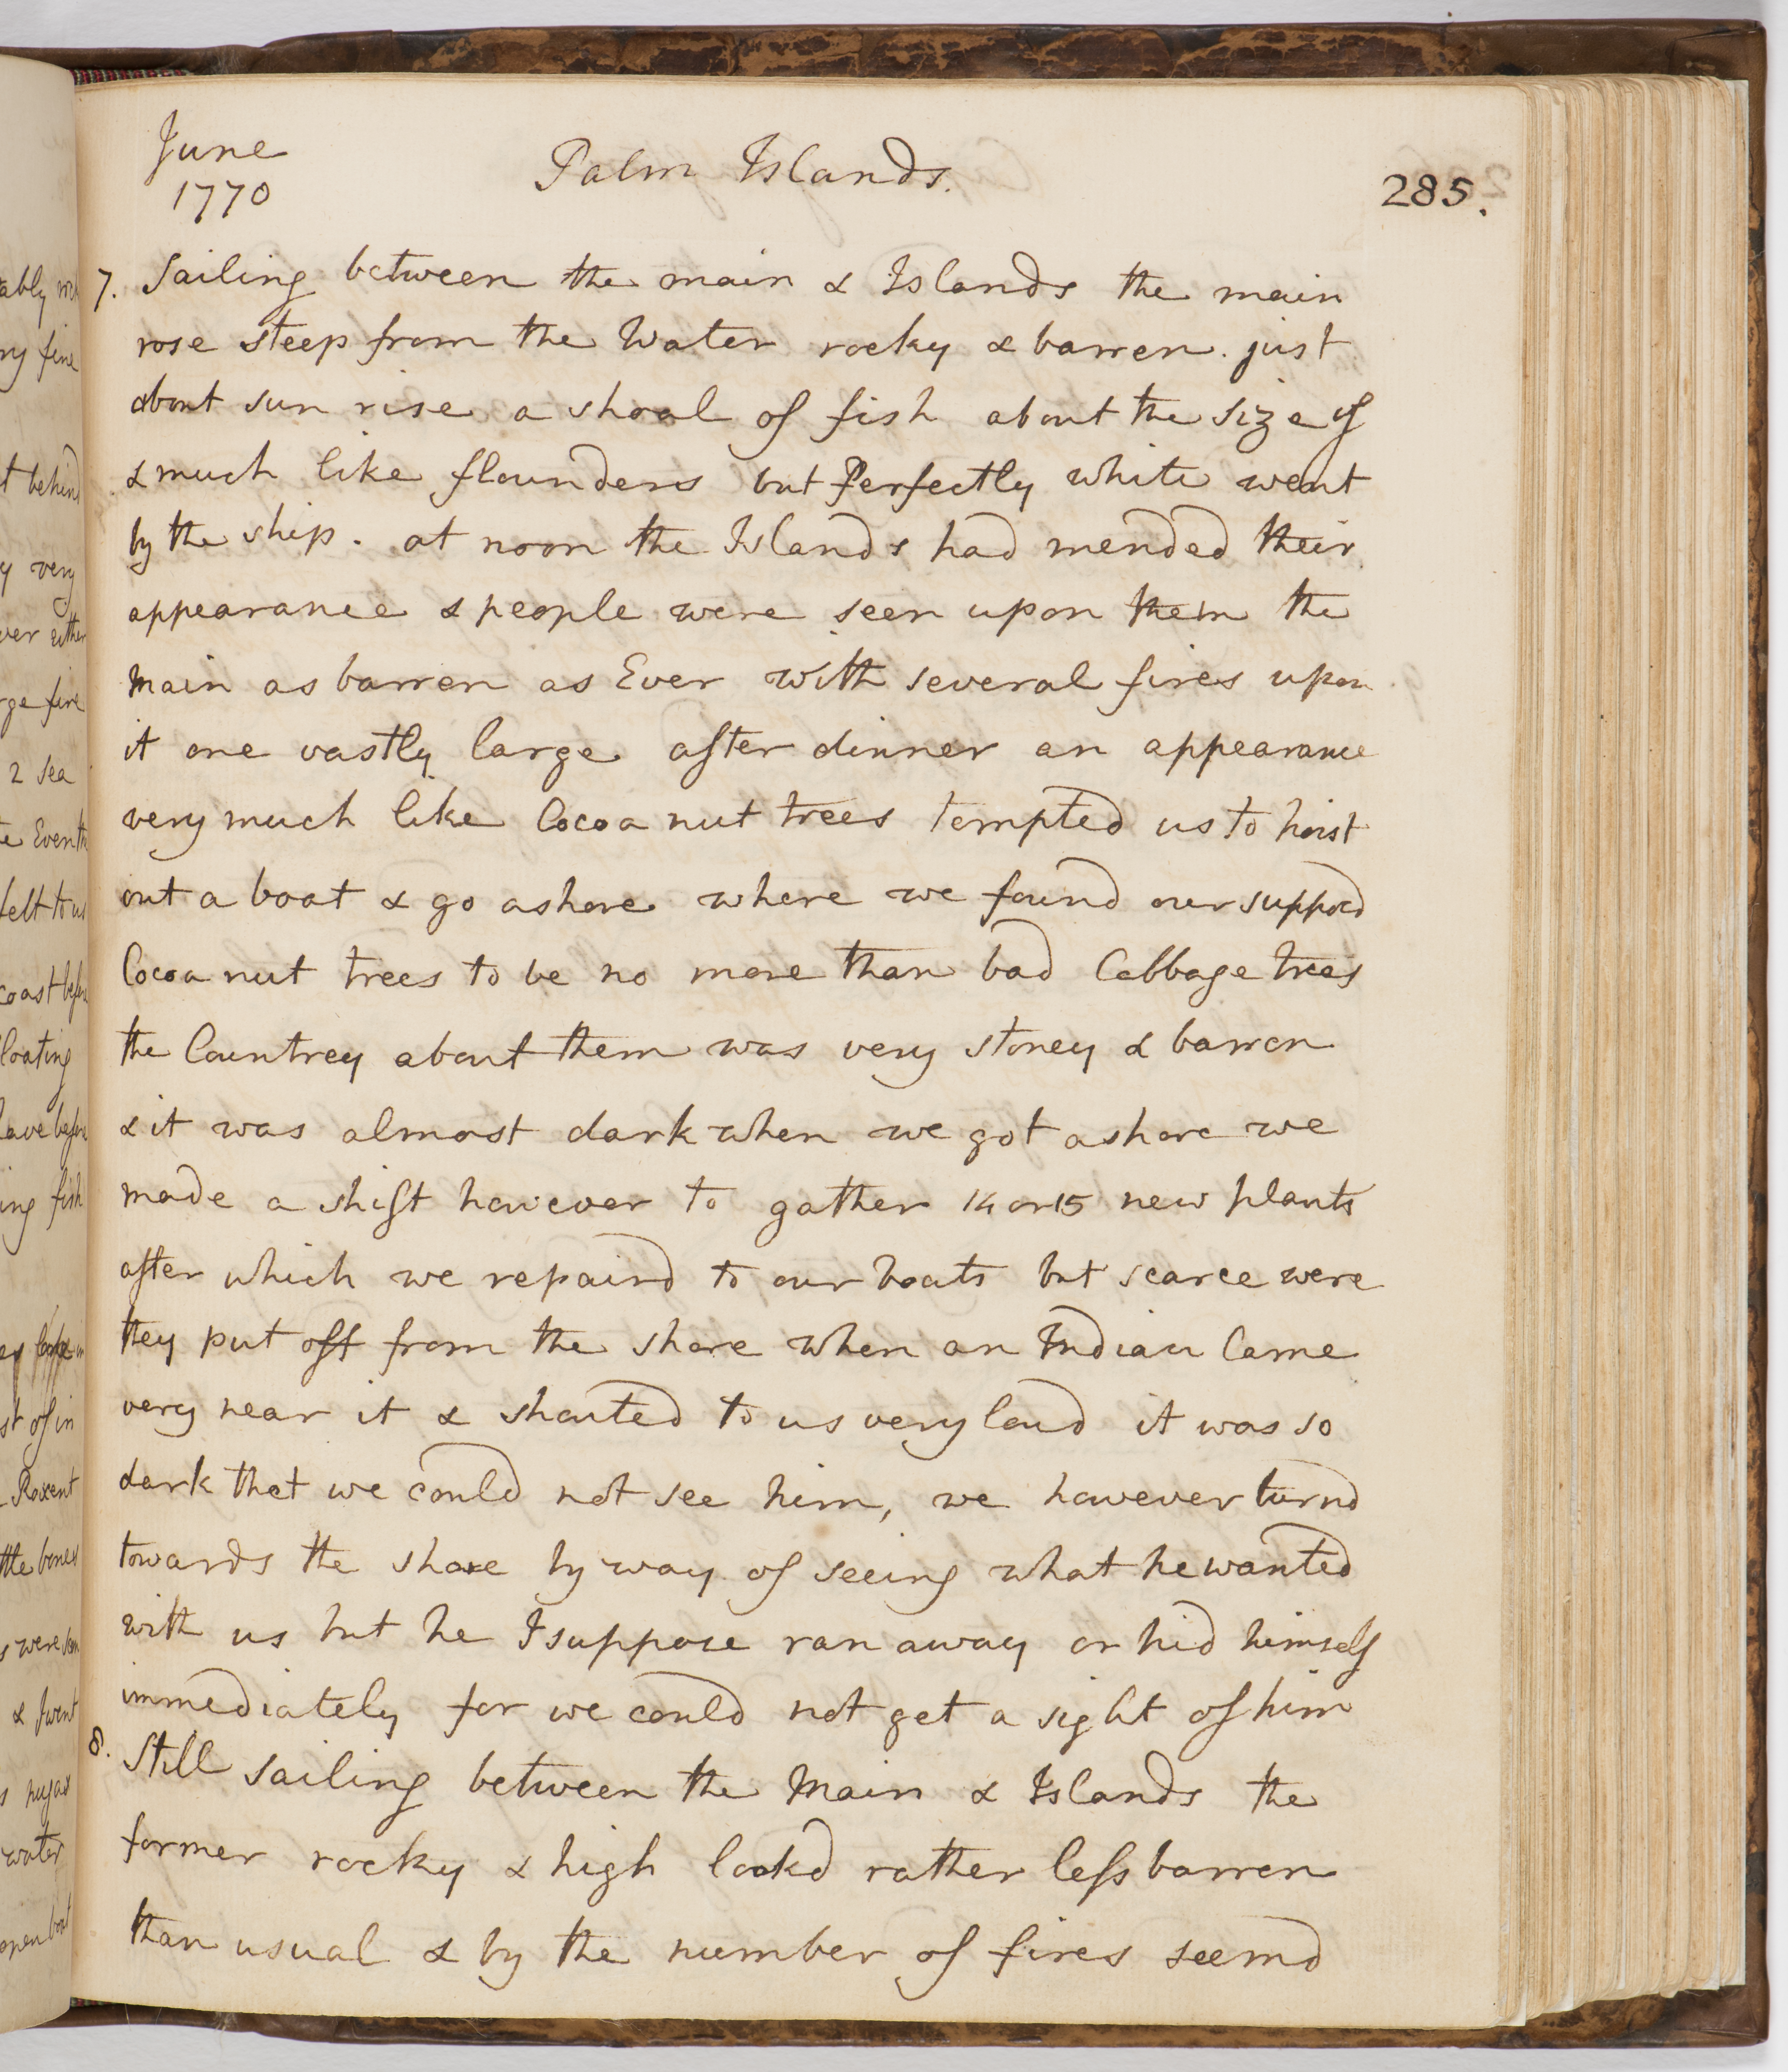 June
1770
Palm Islands.
285.
7. Sailing between the main & Islands the main
rose steep from the Water rocky & barren. just
about sun rise a shoal of fish about the size of
& much like flounders but Perfectly white went
by the ship. at noon the Islands had mended their
appearance & people were seen upon them the
main as barren as Ever with several fires upon
it one vastly large after dinner an appearance
very much like Cocoa nut trees tempted us to hoist
out a boat & go ashore where we found our supposd
Cocoa nut trees to be no more than bad Cabbage trees
the Countrey about them was very stoney & barren
& it was almost dark when we got ashore we
made a shift however to gather 14 or 15 new plants
after which we repaird to our boats but scarce were
they put off from the shore when an Indian Came
very near it & shouted to us very loud it was so
dark that we could not see him, we however turnd
towards the shore by way of seeing what he wanted
with us but he I suppose ran away or hid himself
immediately for we could not get a sight of him
8. Still sailing between the Main & Islands the
former rocky & high lookd rather less barren
than usual & by the number of fires seemd
ry fine
t behind
y very
ver either
rge fire
2 sea
felt to us
coast before
loating
have before
ing fish
st of in
the bones
& I went
water
open boat